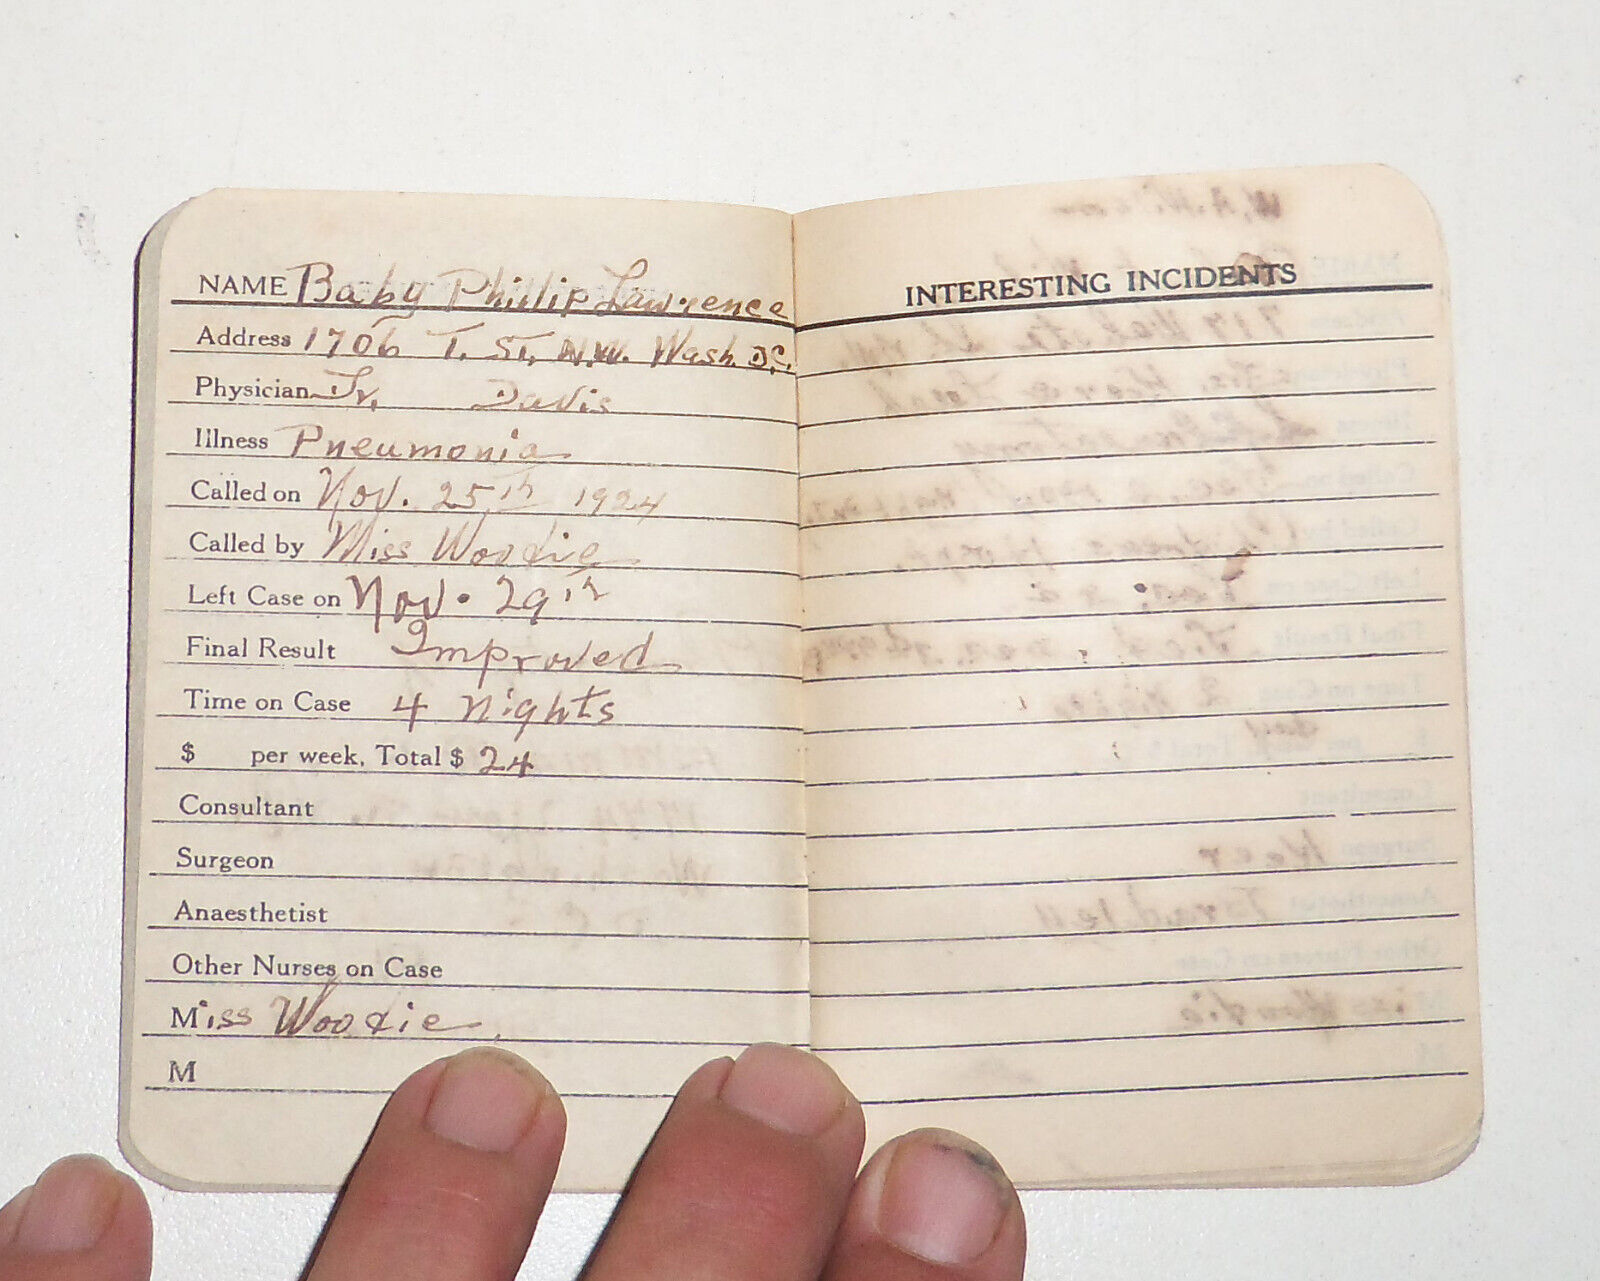 NAME Baby Phillip Lawrence
Address 1706 T. St. N.W. Wash. D.C.
Physician Dr. Davis
Illness Pneumonia
Called on Nov. 25th 1924
Called by Miss Woodie
Left Case on Nov. 29th
Final Result Improved
Time on Case 4 nights
$ per week, Total $ 24
Consultant
Surgeon
Anaesthetist
Other Nurses on Case
Miss Woodie
M
INTERESTING INCIDENTS